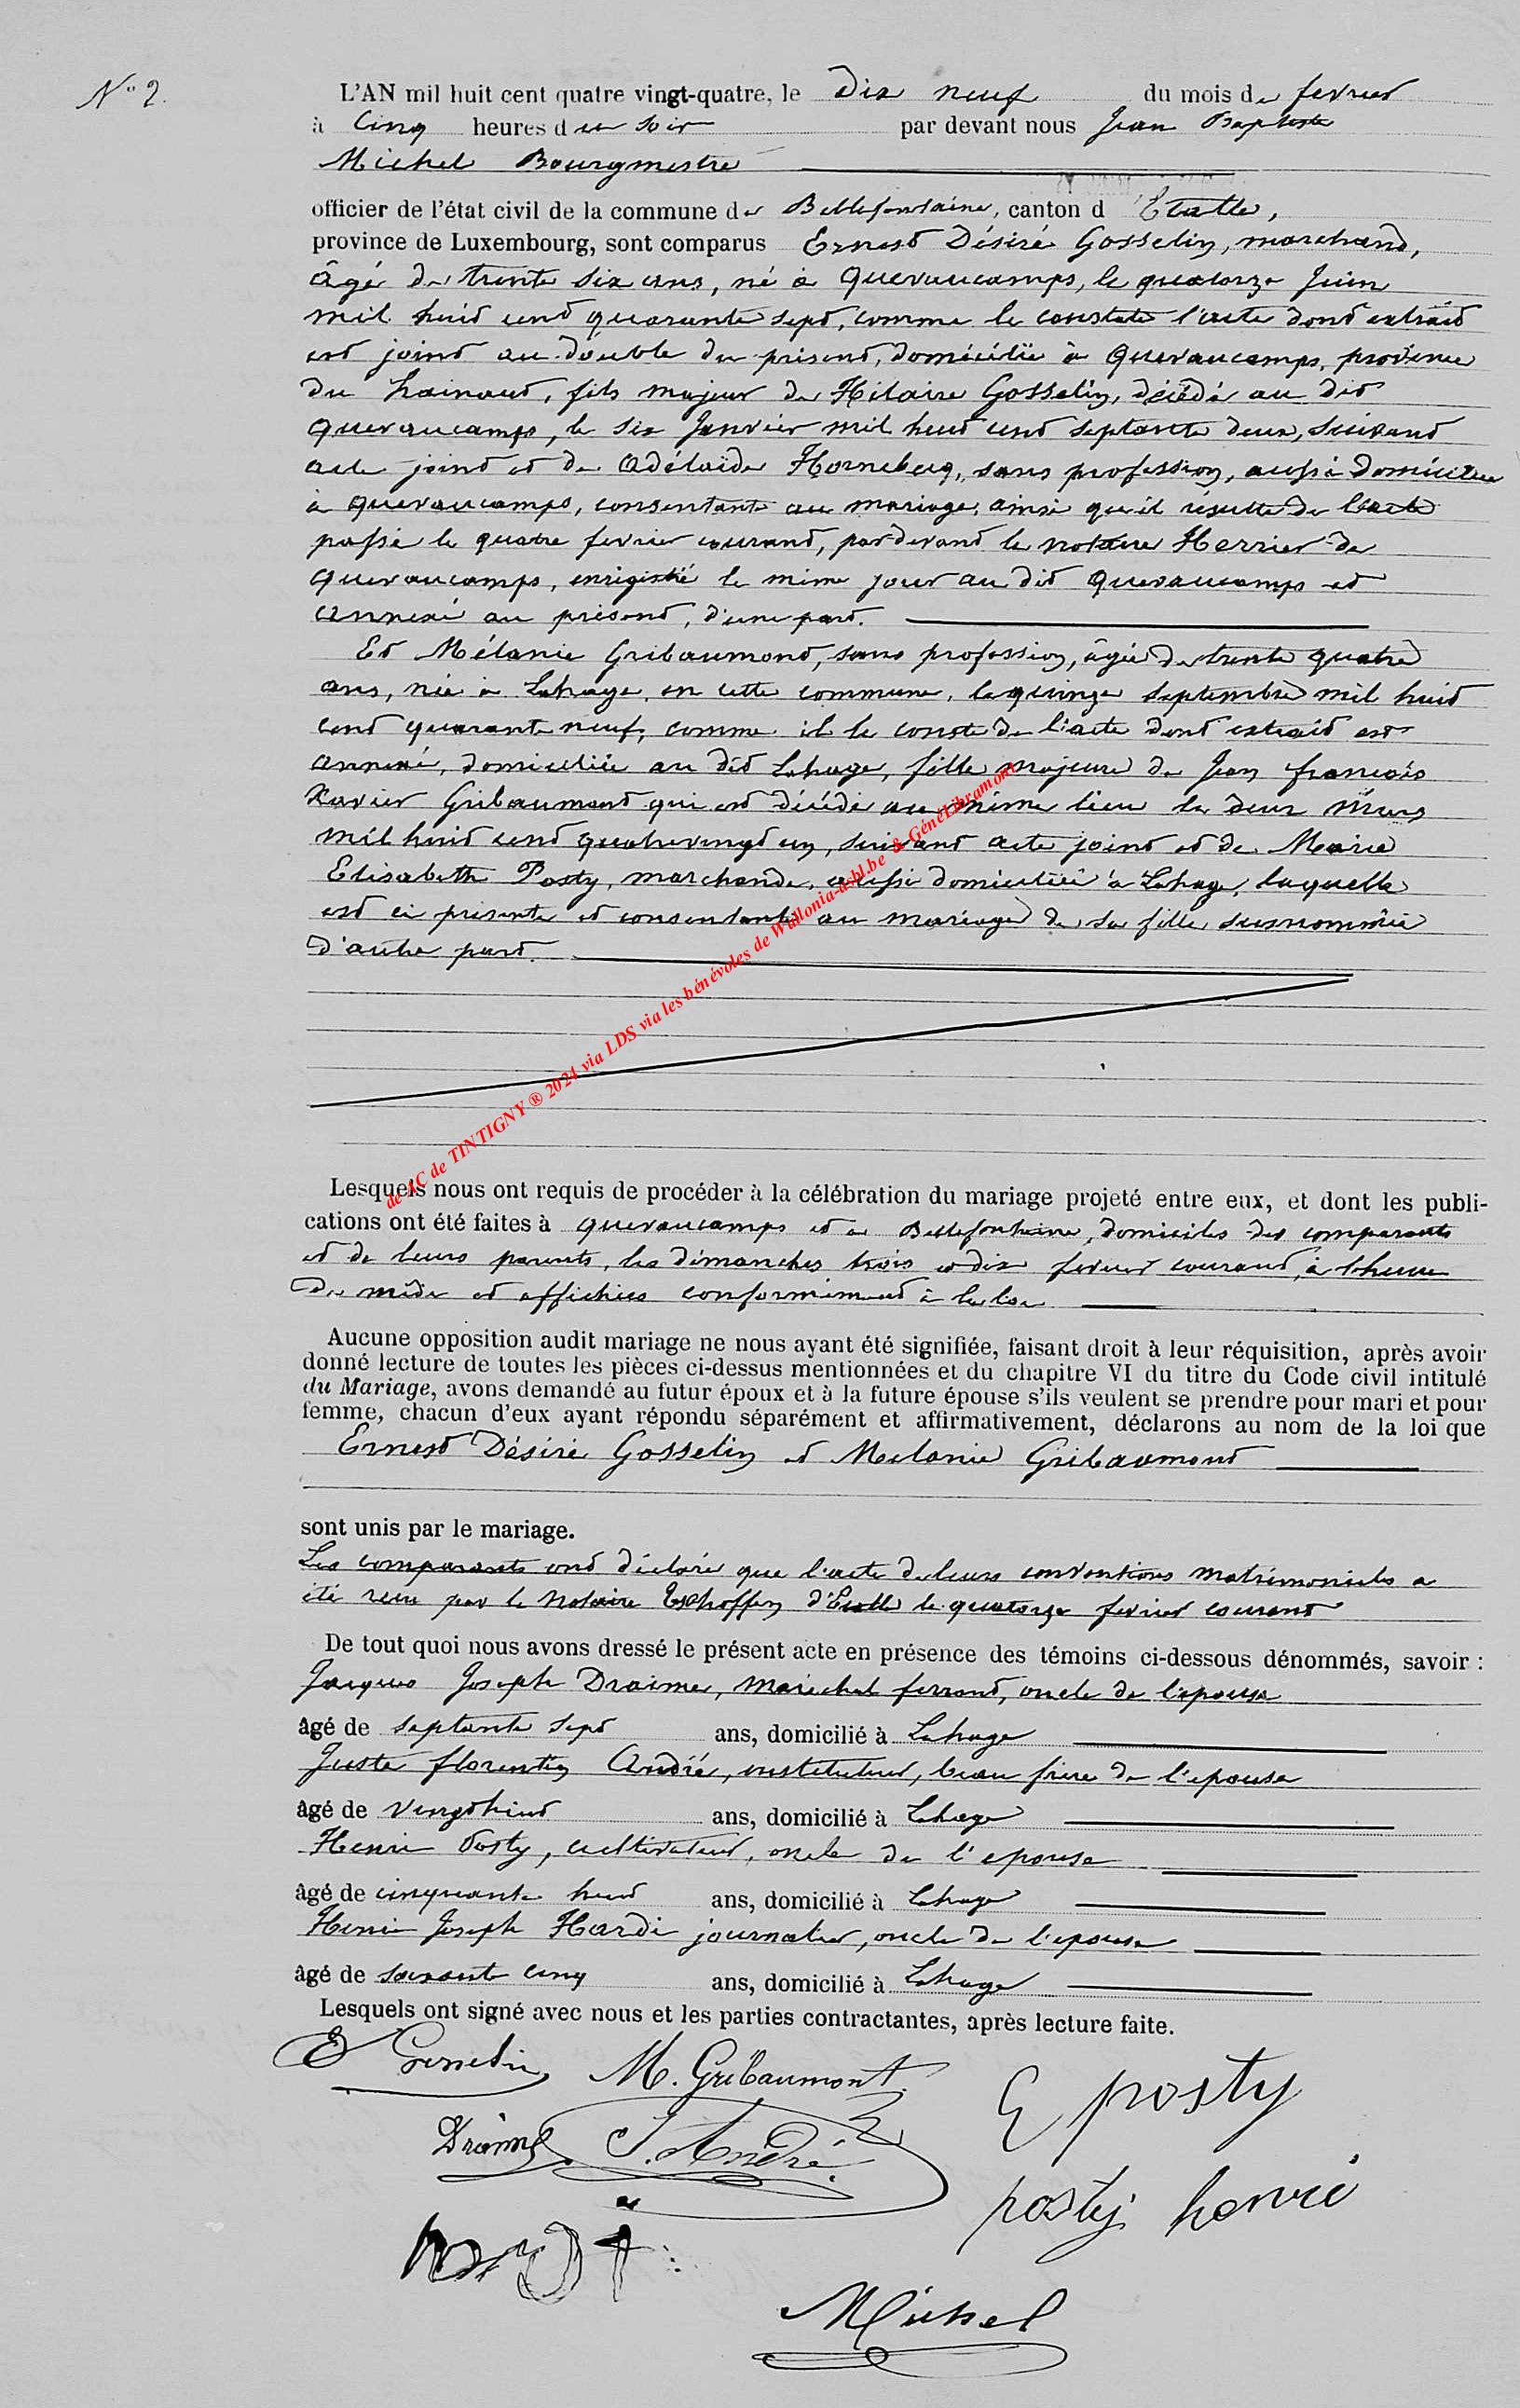 N° 2.
L'AN mil huit cent quatre vingt-quatre, le dix neuf du mois de fevrier
à Cinq heures du soir par devant nous Jean Baptiste
Michel Bourgmestre
officier de l'état civil de la commune de Bellefontaine, canton d'Etalle,
province de Luxembourg, sont comparus Ernest Désiré Gosselin, marchand,
âgé de trente six ans, né à Quevaucamps, le quatorze Juin
mil huit cent quarante sept, comme le constate l'acte dont extrait
est joint au double du présent, domicilié à Quevaucamps, province
du hainaut, fils majeur de Hilaire Gosselin, décédé au dit
Quevaucamps, le six Janvier mil huit cent septante deux, suivant
acte joint et de Adélaïde Hornebecq, sans profession, aussi domiciliée
à Quevaucamps, consentante au mariage, ainsi qu'il résulte de l'acte
passé le quatre fevrier courant, par devant le notaire Herrier de
Quevaucamps, enrigistré le même jour au dit Quevaucamps et
annexé au présent, d'une part.
Et Mélanie Gribaumont, sans profession, âgée de trente quatre
ans, née à Lahage, en cette commune, le quinze septembre mil huit
cent quarante neuf, comme il le conste de l'acte dont extrait est
annexé, domiciliée au dit Lahage, fille majeure de Jean françois
Xavier Gribaumont qui est décédé au même lieu le deux Mars
mil huit cent quatrevingt un, suivant acte joint et de Marie
Elisabeth Posty, marchande, aussi domiciliée à Lahage, laquelle
est ci présente et consentante au mariage de sa fille susnommée
d'autre part.
de AC de TINTIGNY ® 2024 via LDS via les bénévoles de Wallonia-asbl.be & GénéLibramont
Lesquels nous ont requis de procéder à la célébration du mariage projeté entre eux, et dont les publi-
cations ont été faites à Quevaucamps et à Bellefontaine, domiciles des comparants
et de leurs parents, les dimanches trois et dix fevrier courant, à l'heure
de midi et affichées conformément à la loi
Aucune opposition audit mariage ne nous ayant été signifiée, faisant droit à leur réquisition, après avoir
donné lecture de toutes les pièces ci-dessus mentionnées et du chapitre VI du titre du Code civil intitulé
du Mariage, avons demandé au futur époux et à la future épouse s'ils veulent se prendre pour mari et pour
femme, chacun d'eux ayant répondu séparément et affirmativement, déclarons au nom de la loi que
Ernest Désiré Gosselin et Mélanie Gribaumont
sont unis par le mariage.
Les comparants ont déclaré que l'acte de leurs conventions matrimoniales a
été reçu par le notaire Tschoffen d'Etalle le quatorze fevrier courant
De tout quoi nous avons dressé le présent acte en présence des témoins ci-dessous dénommés, savoir :
Jacques Joseph Draime, maréchal ferrant, oncle de l'épouse
âgé de septante sept ans, domicilié à Lahage
Juste florentin André, instituteur, beau frère de l'épouse
âgé de vingt huit ans, domicilié à Lahage
Henri Posty, cultivateur, oncle de l'epouse
âgé de cinquante huit ans, domicilié à Lahage
Henri Joseph Hardi journalier, oncle de l'epouse
âgé de soixante cinq ans, domicilié à Lahage
Lesquels ont signé avec nous et les parties contractantes, après lecture faite.
E Gosselin M. Gribaumont E posty
Draime J. André
posty henri
Michel